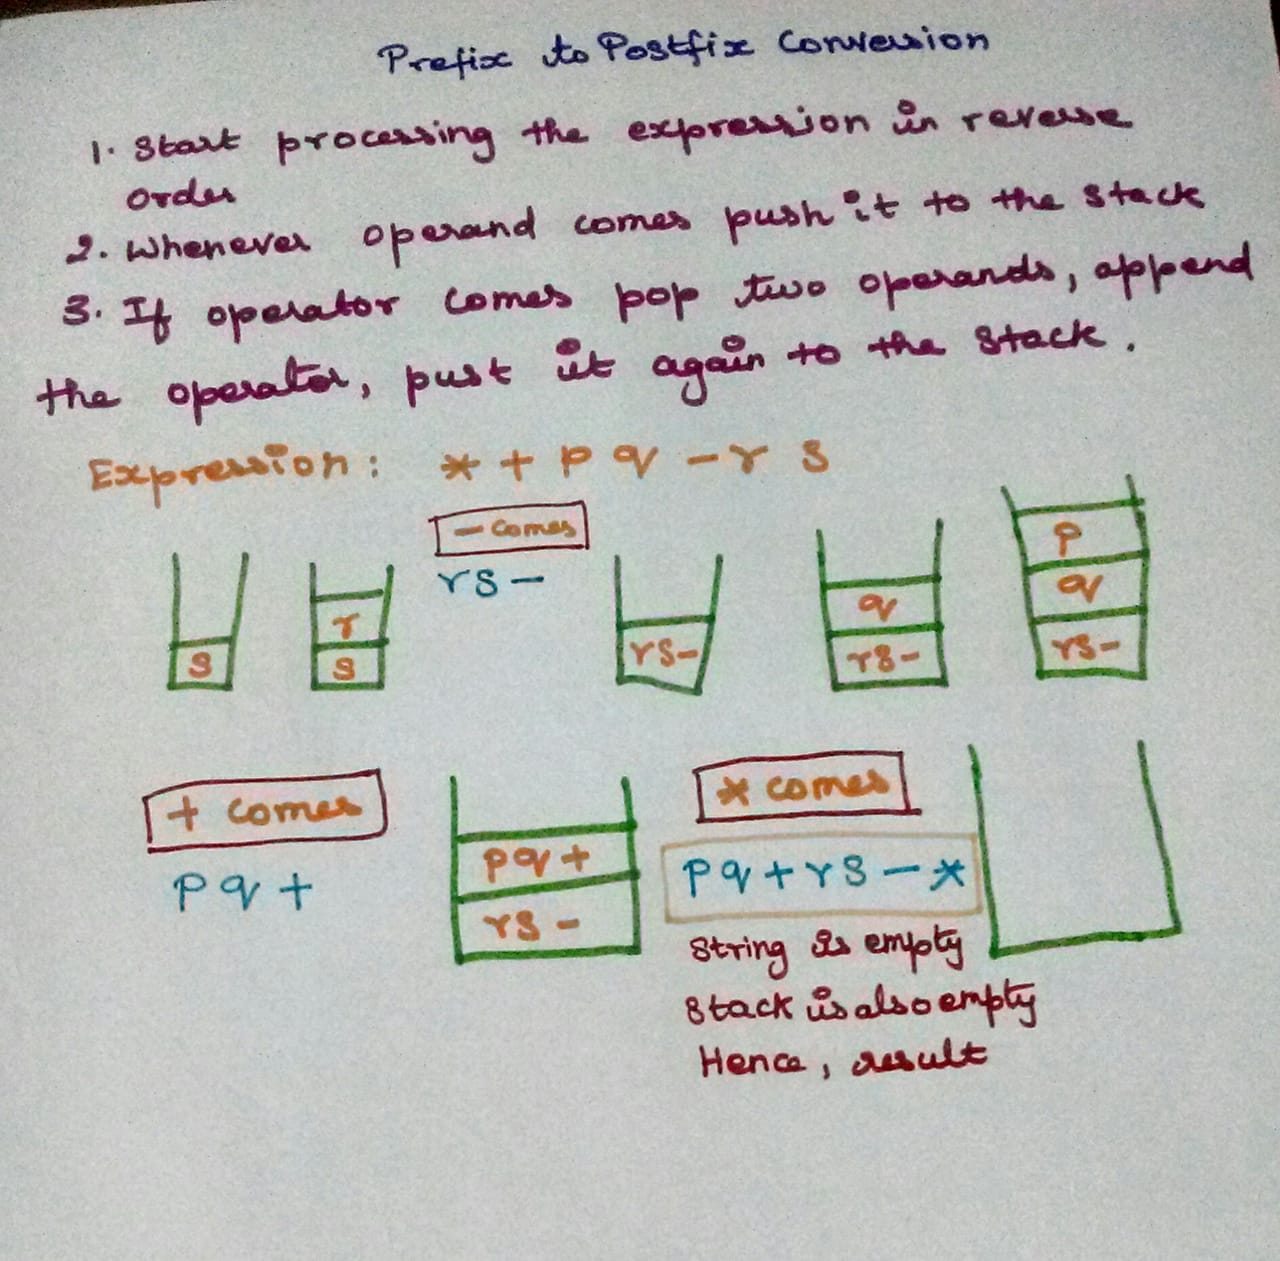 Prefix to Postfix Conversion
1. Start processing the expression in reverse
order
2. Whenever operand comes push it to the stack
3. If operator comes pop two operands, append
the operator, pust it again to the stack.
Expression: * + p q - r s
- comes
rs -
s
r
s
rs-
q
rs-
p
q
rs-
+ comes
p q +
pq+
rs -
* comes
p q + r s - *
String is empty
Stack is also empty
Hence, result